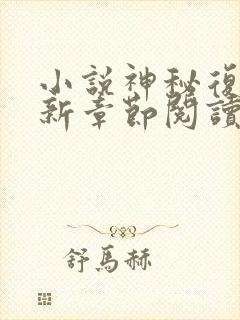 小說神秘復
新章節閱讀
舒馬赫